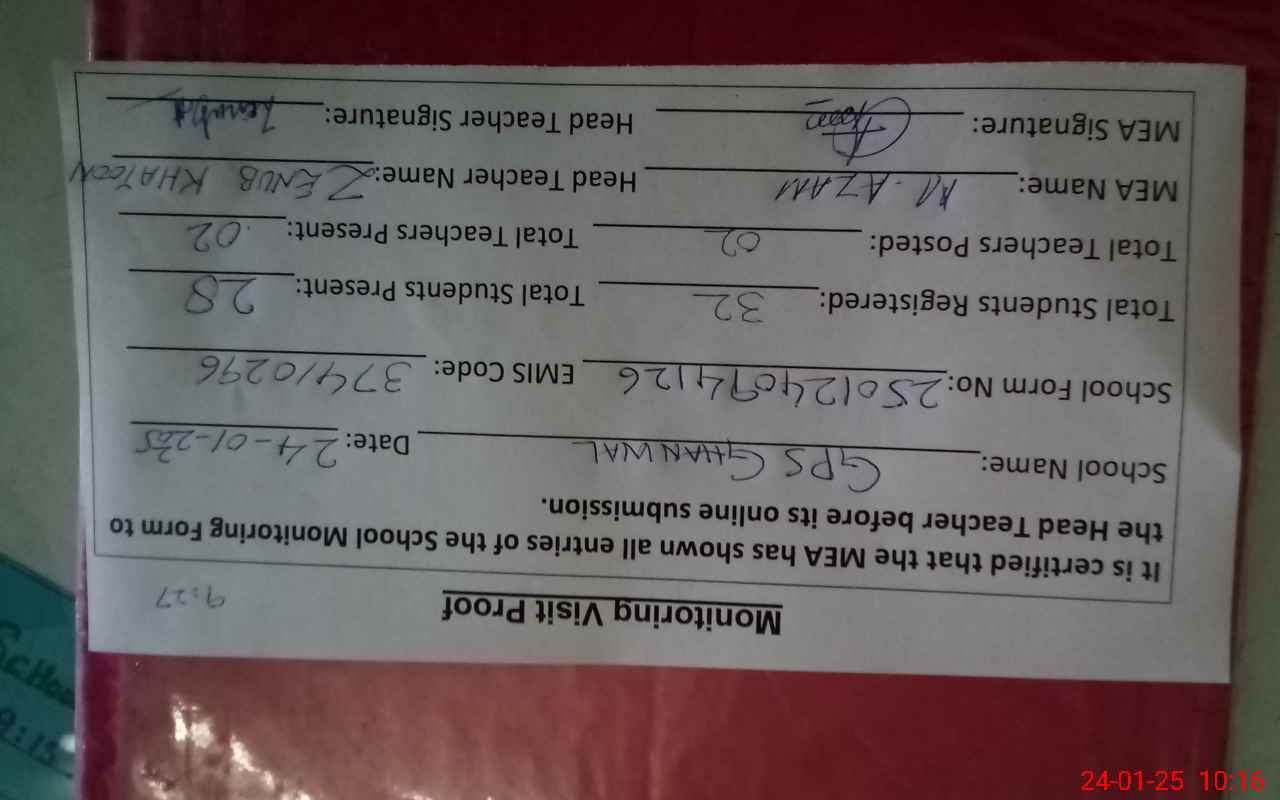 Monitoring Visit Proof
9:27
It is certified that the MEA has shown all entries of the School Monitoring Form to
the Head Teacher before its online submission.
School Name: GPS GHANWAL Date: 24-01-2025
School Form No: 250124094126 EMIS Code: 37410296
Total Students Registered: 32 Total Students Present: 28
Total Teachers Posted: 02 Total Teachers Present: 02
MEA Name: M. AZAM Head Teacher Name: ZENUB KHATOON
MEA Signature: Head Teacher Signature:
9:15
24-01-25 10:16